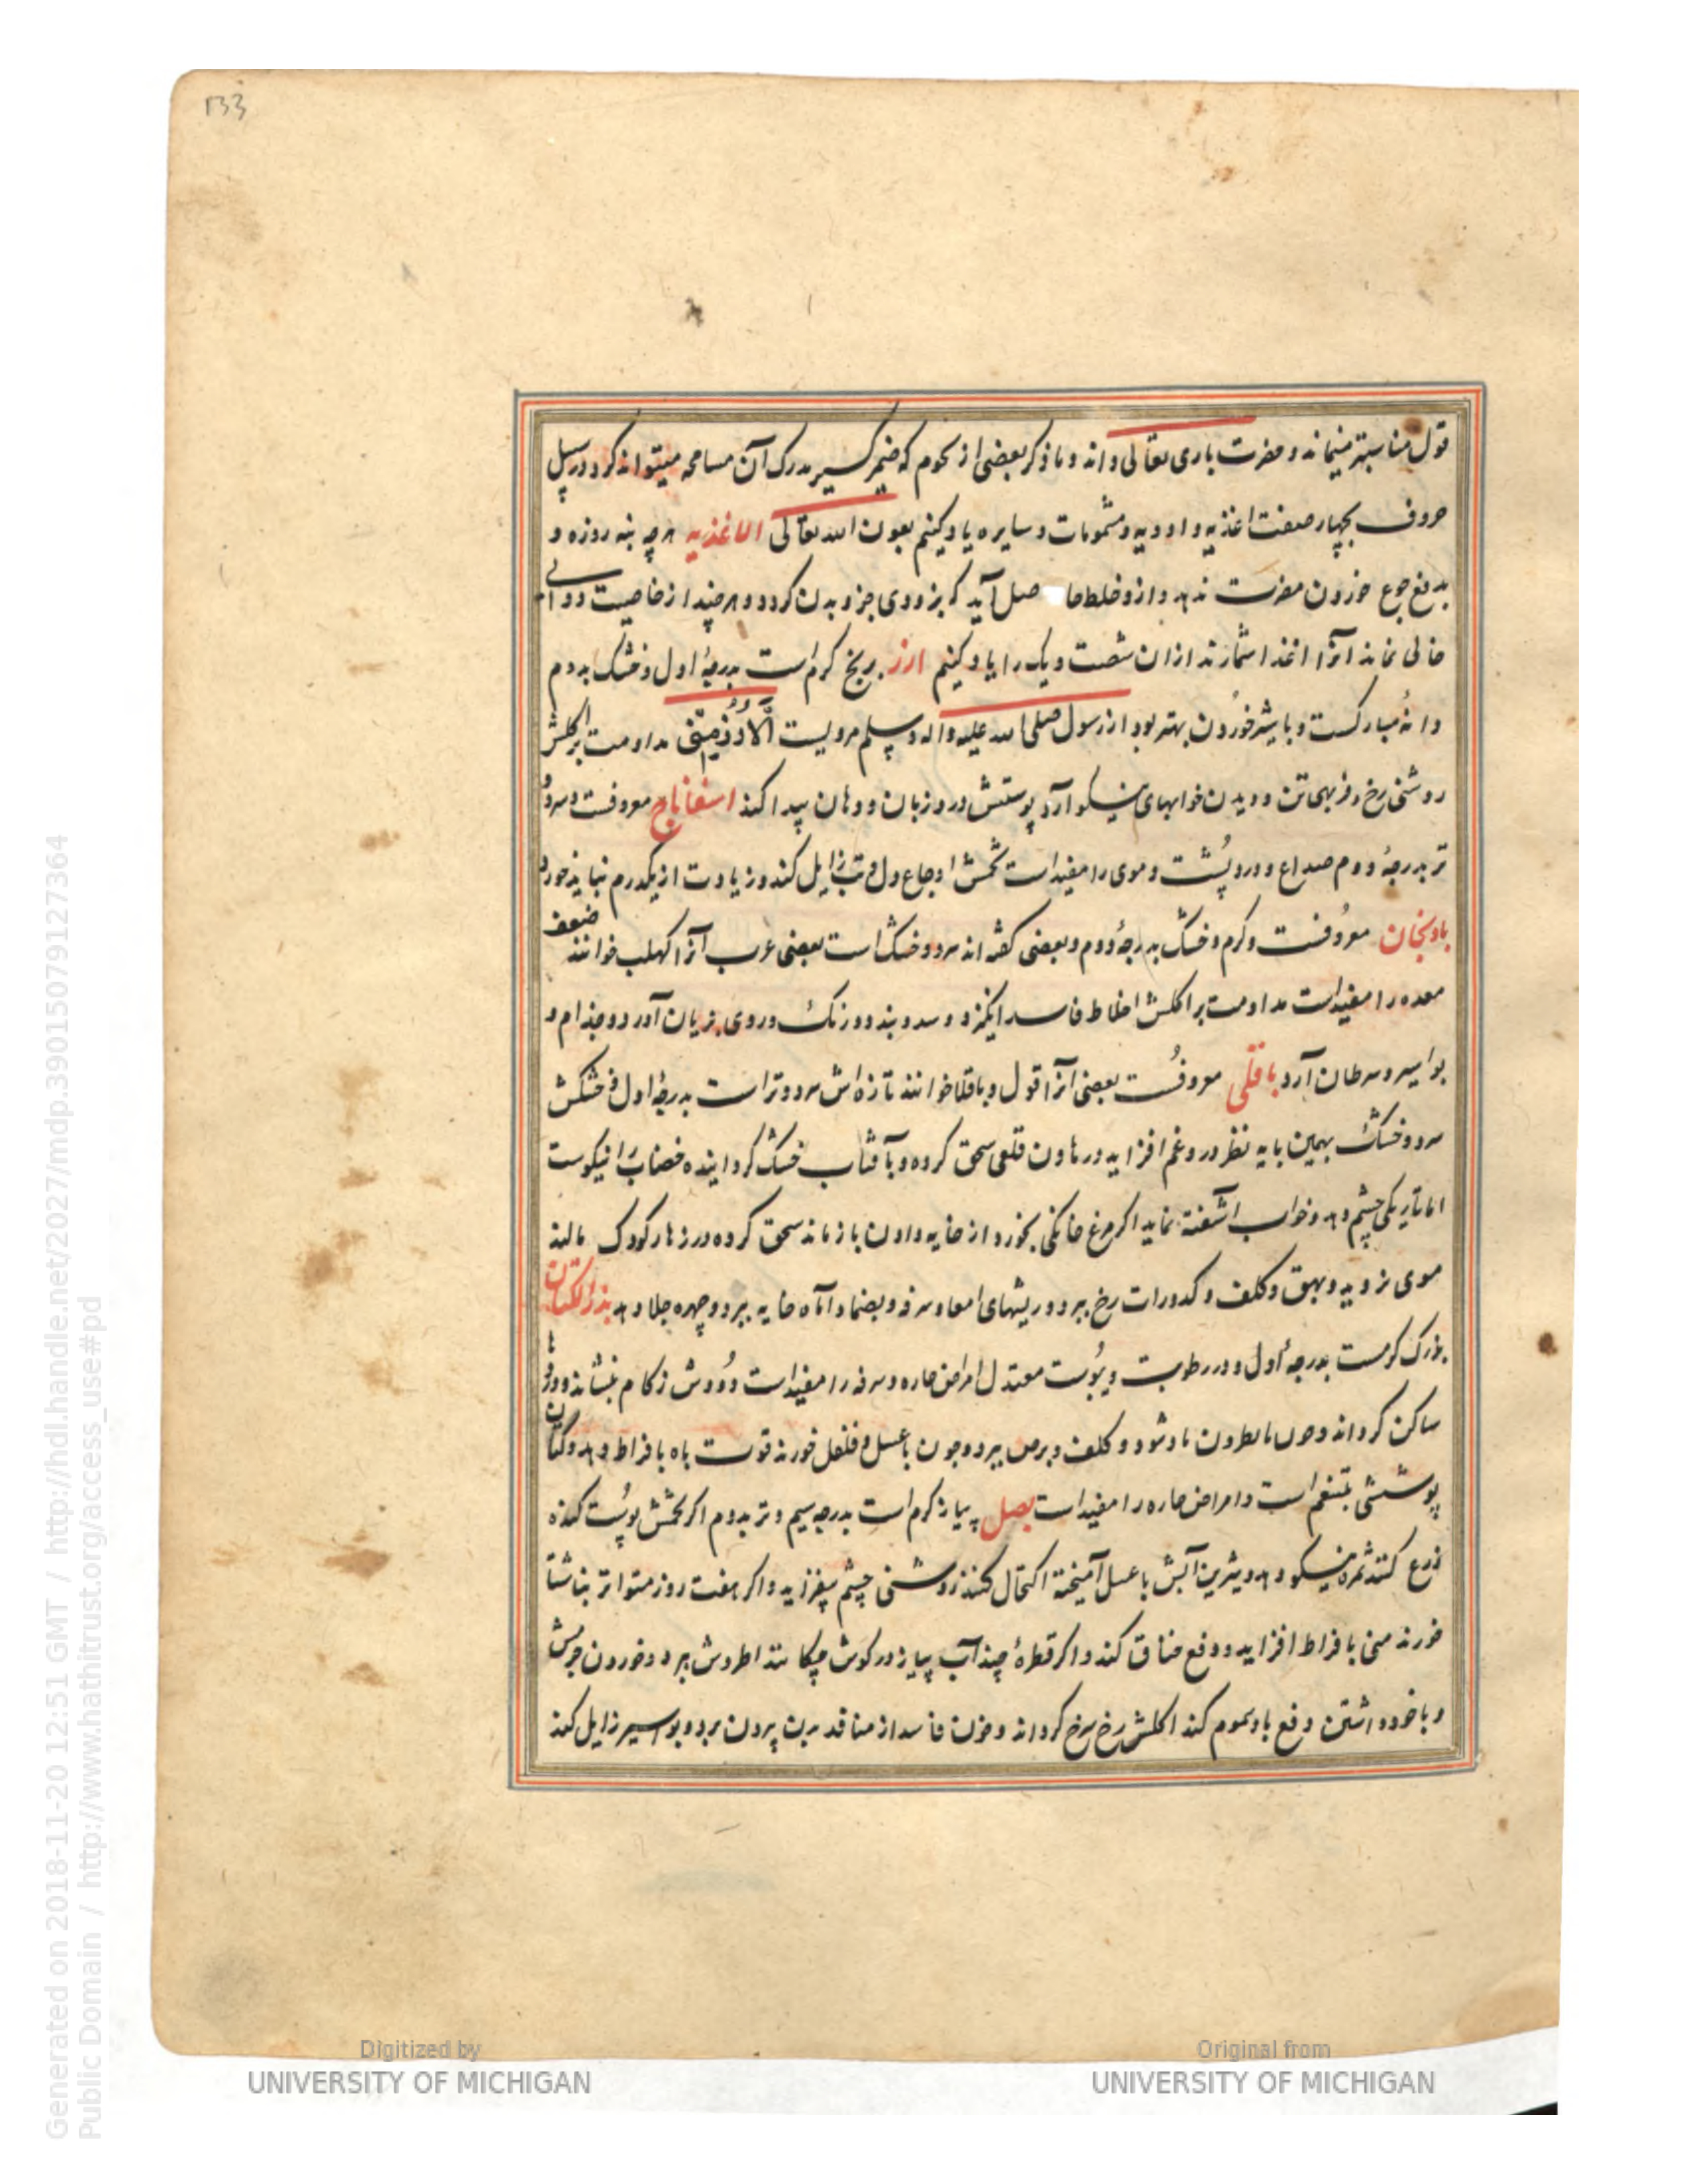 133
قول مناسبتر مینماند و مضرت باری تعالی داند و ما ذکر بعضی از نجوم که ضمیر مدرک آن مسامحه میتواند کرد در سبیل
حروف بچهار صفت اغذیه و ادویه و مشمومات و سایره یاد کنیم بعون الله تعالی الاغذیه هرچه بنه روزه و
بدفع جوع خوردن مضرت ندهد و ازو خلط حاصل آید که بزودی جزو بدن گردد و هر چند از خاصیت دوائی
خالی نماند آنرا اغذا شمارند ازان شصت و یک را یاد کنیم ارز برنج گرم است بدرجهٔ اول و خشک بدوم
دانهٔ مبارکست و با شیر خوردن بهتر بود از رسول صلی الله علیه و اله و سلم مرویست الارز منی مداومت بر اکلش
روشنی رخ و فربهی تن و دیدن خوابهای نیکو آرد پوستش درد زبان و دهان پیدا کند اسفاناج معروفست و سرد و
تر بدرجهٔ دوم صداع و درد پشت و موی را مفید است تخمش اوجاع دل و تب زایل کند و زیادت از یکدرم نباید خورد
بادنجان معروفست و گرم و خشک بدرجهٔ دوم و بعضی گفته اند سرد و خشک است بعضی عرب آنرا کهلب خوانند ضعف
معده را مفید است مداومت بر اکلش اخلاط فاسد انگیزد و سده بندد و رنک و روی بزیان آورد و جذام و
بواسیر و سرطان آرد باقلی معروفست بعضی آنرا قول و باقلا خوانند تازه اش سرد و تر است بدرجهٔ اول و خشکش
سرد و خشک بهمین پایه نظر درو غم افزاید در هاون قلعی سحق کرده و بآفتاب خشک گردانیده خضاب را نیکوست
اما تاریکی چشم دهد و خواب آشفته نماید اگر مرغ خانگی بخورد از خایه دادن باز ماند سحق کرده در زهار کودک مالند
موی نروید و بهق و کلف و کدورات رخ ببرد و ریشهای امعا و سرفه و بضماد آماه خایه ببرد و چهره جلا دهد بذر الکتان
بزرک گرمست بدرجهٔ اول و در رطوبت و یبوست معتدل امراض حاره و سرفه را مفید است و دودش زکام بنشاند و دردها
ساکن گرداند و کلف و برص ببرد و چون با عسل و فلفل خورند قوت باه بافراط دهد و کتان
پوششی بتنعم است و امراض حاره را مفید است بصل پیاز گرم است بدرجه سیم و تر بدوم اگر تخمش پوست کنده
زرع کنند ثمره نیکو دهد و شیرین آبش با عسل آمیخته اکتحال کنند روشنی چشم بیفزاید و اگر هفت روز متواتر بناشتا
خورند منی بافراط افزاید و دفع خناق کند و اگر قطرهٔ چند آب پیاز در گوش چکانند اطروش ببرد و خوردن جرمش
و با خود داشتن دفع باد سموم کند اکلش رخ سرخ گرداند و خون فاسد از منافذ بدن بیرون برد و بواسیر زایل کند
Generated on 2018-11-20 12:51 GMT / http://hdl.handle.net/2027/mdp.39015079127364
Public Domain / http://www.hathitrust.org/access_use#pd
Digitized by
UNIVERSITY OF MICHIGAN
Original from
UNIVERSITY OF MICHIGAN